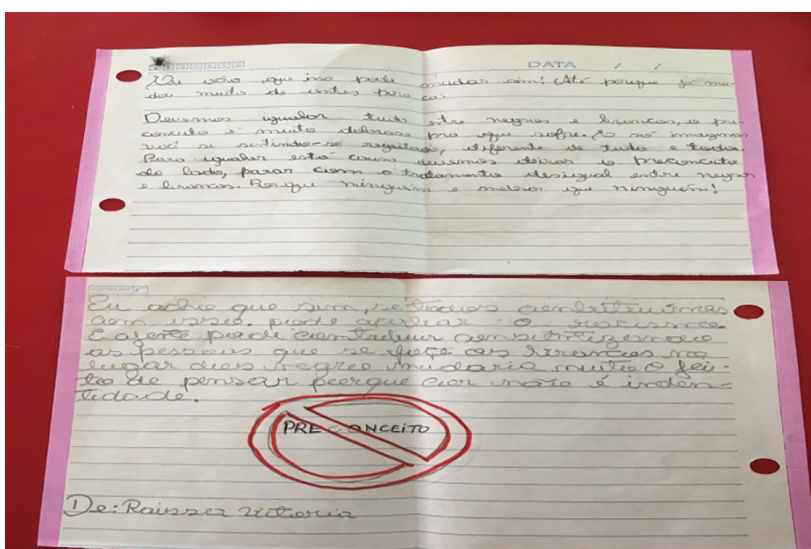 DATA / /
Eu acho que isso pode mudar sim! Até porque já mu-
dou muito de antes pra cá.
Devemos igualar tudo entre negros e brancos, o pre-
conceito é muito doloroso pro que sofre. Eu só imagino
você se sentindo-se regeitado, diferente de tudo e todos.
Para igualar esta causa devemos deixar o preconceito
de lado, parar com o tratamento desigual entre negros
e brancos. Porque ninguém e melhor que ninguém!
Eu acho que sim, se todos contribuimos
com isso pode acabar o racismo
E agente pode contribuir
as pessoas que se faça os brancos no
lugar dos negro mudaria muito o jei-
to de pensar porque cor não é inden-
tidade.
PRECONCEITO
De: Raissa Vitoria